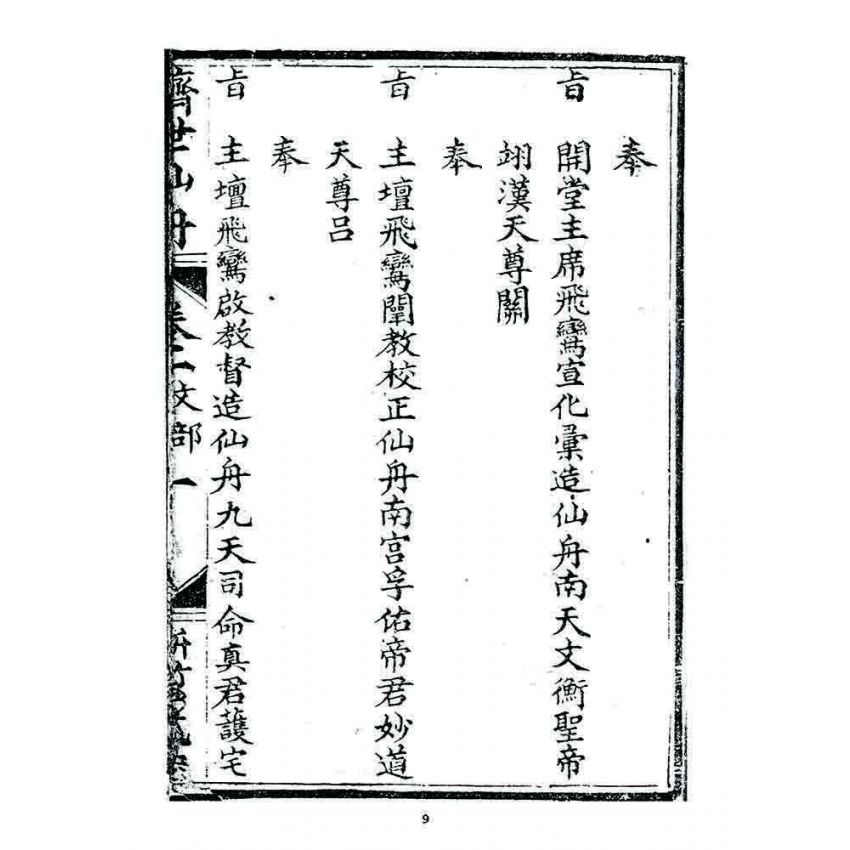 奉
旨 開堂主席飛鸞宣化彙造仙舟南天文衡聖帝
翊漢天尊關
奉
旨 主壇飛鸞闡教校正仙舟南宮孚佑帝君妙道
天尊呂
奉
旨 主壇飛鸞啟教督造仙舟九天司命真君護宅
濟世仙舟 卷一 文部 一
9